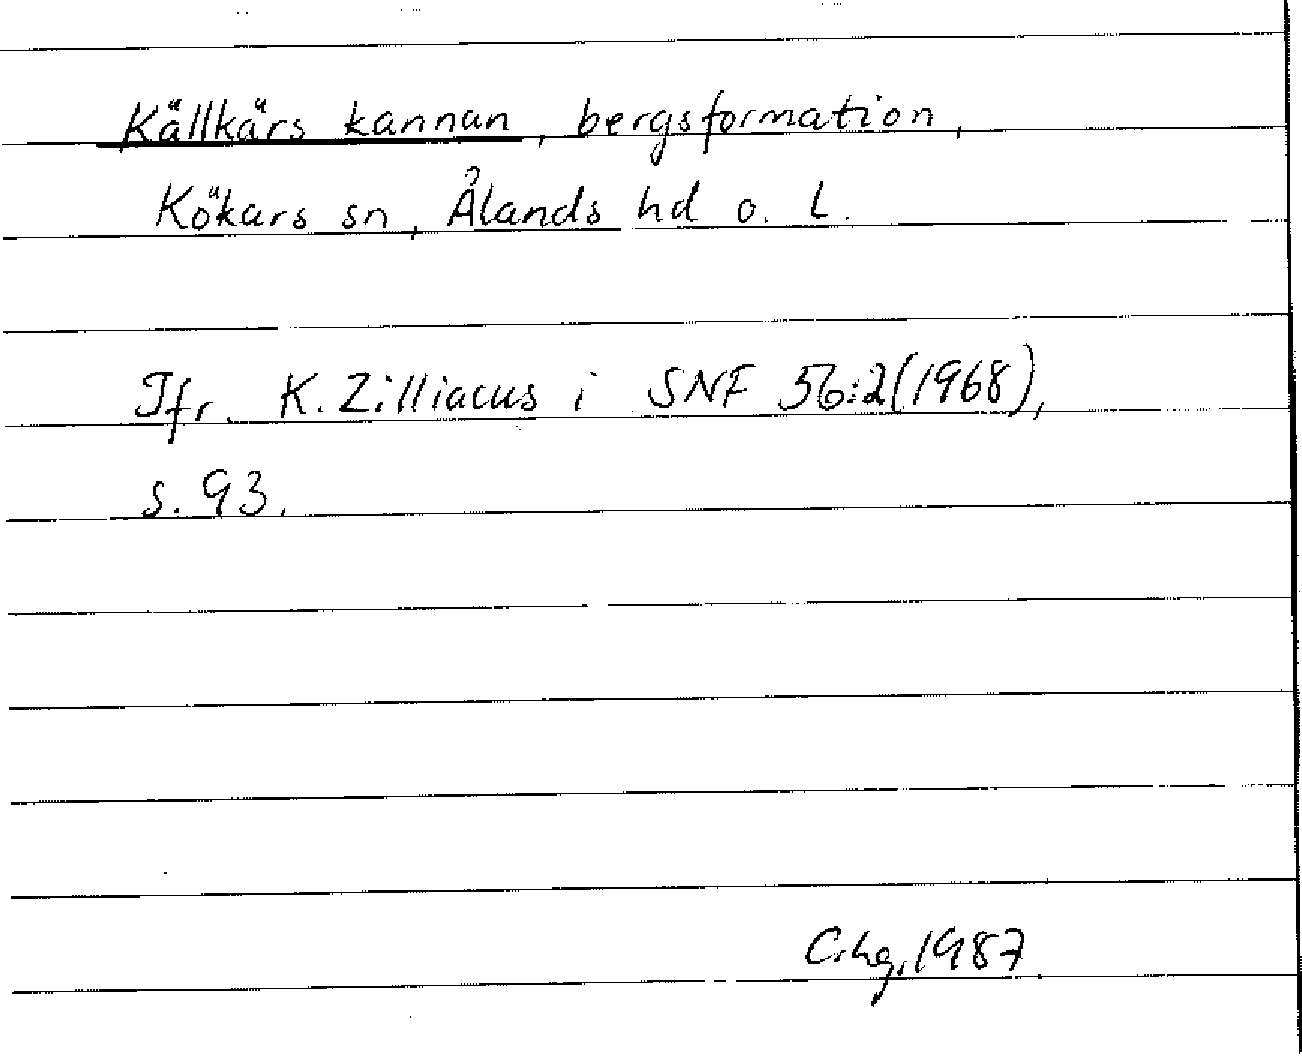 Källkärs kannan, bergsformation,
Kökars sn, Ålands hd o. L.
Jfr K. Zilliacus i SNF 56:2 (1968),
s. 93.
C.hg. 1987.